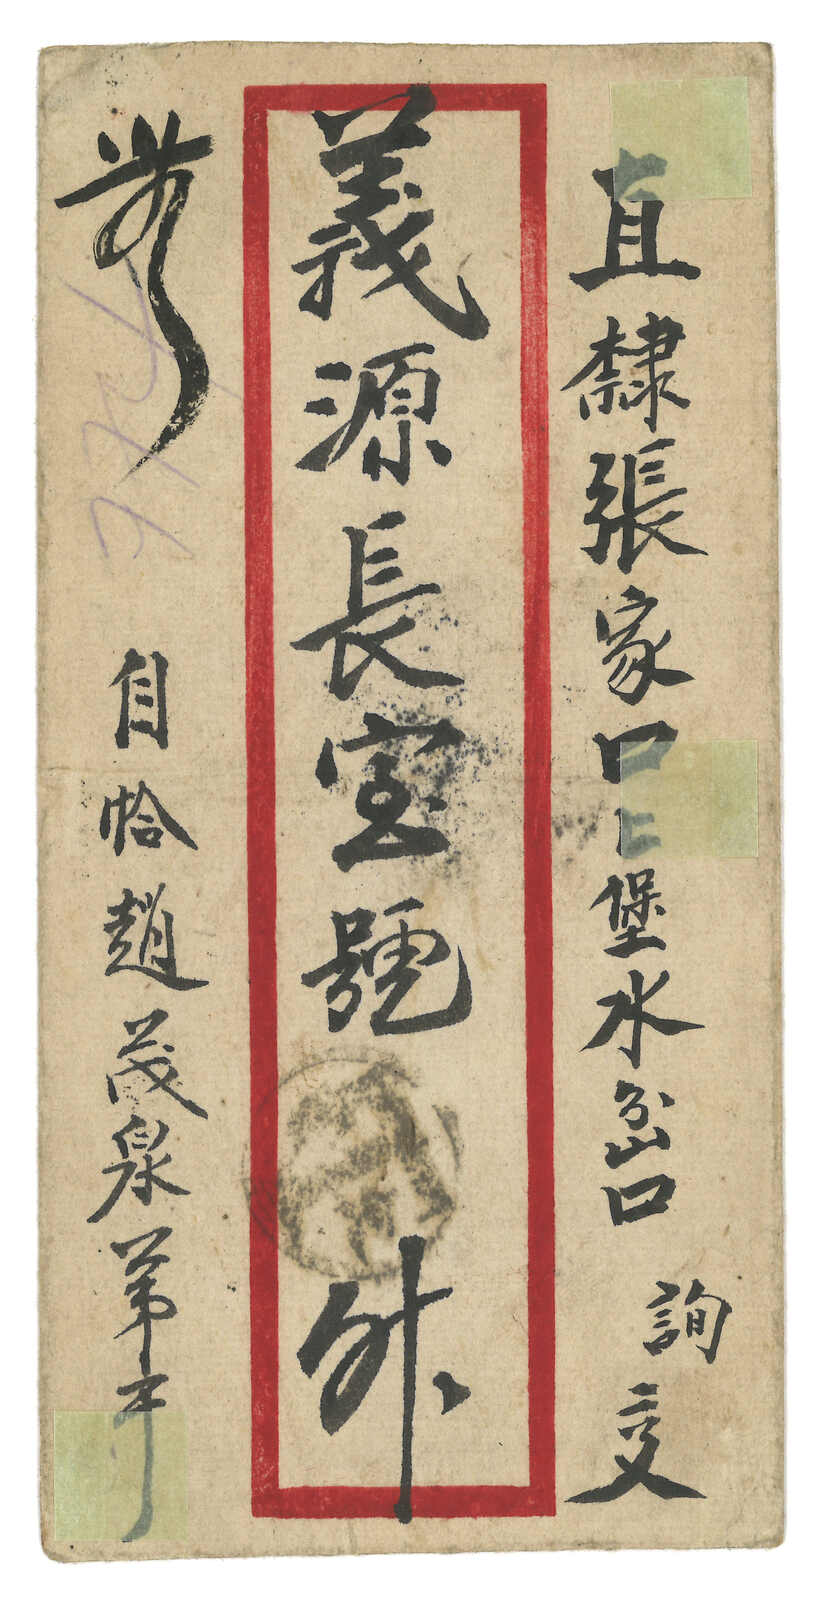 直隸張家口上堡水岔口 詢交
義源長寶號 升
自恰趙茂泉第一